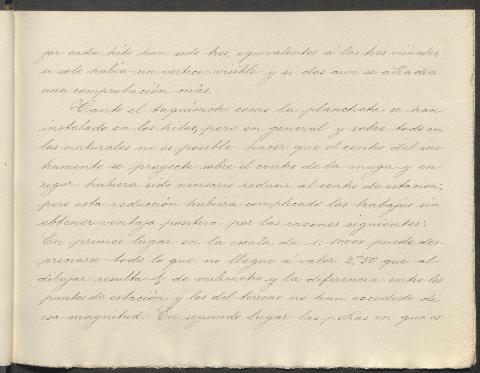 jar cada hito han sido tres, equivalentes á las tres visuales,
si solo habia un vertice visible y si dos aun se añadia
una comprobación más.
Tanto el taquímetro como la plancheta se han
instalado en los hitos; pero en general y sobre todo en
los naturales no es posible hacer que el centro del ins-
trumento se proyecte sobre el centro de la muga y en
rigor hubiera sido necesario reducir al centro de estación;
pero esta reducción hubiera complicado los trabajos sin
obtener ventaja positiva por las razones siguientes:
En primer lugar en la escala de 1:10000 puede des-
preciarse todo lo que no llegue á valer 2,50 que al
dibujar resulta ¼ de milímetro y la diferencia entre los
puntos de estación y los del terreno no han excedido de
esa magnitud. En segundo lugar las peñas en que es-